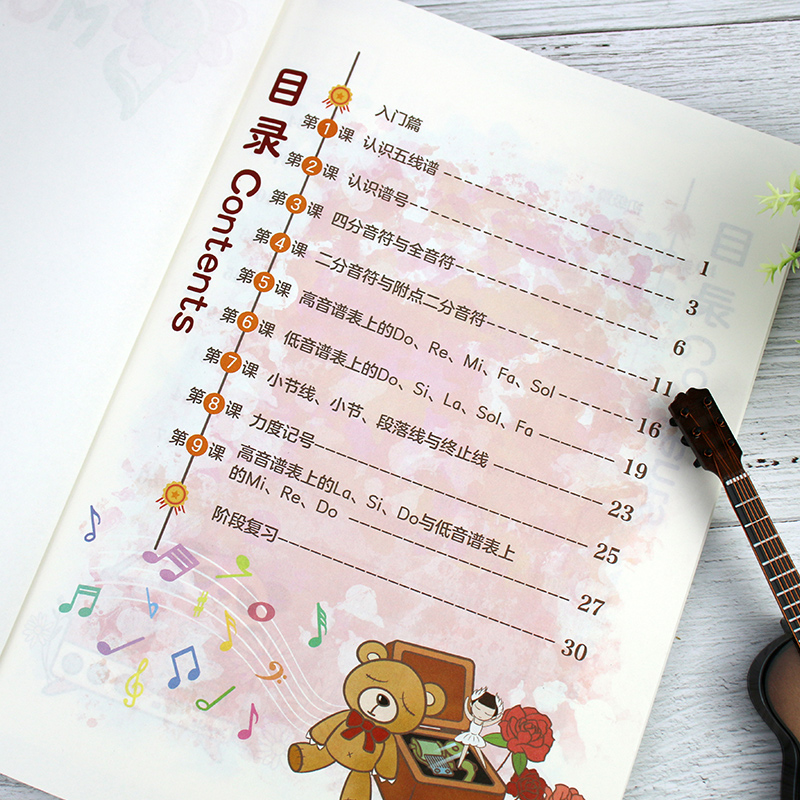 目录 Contents
入门篇
第1课 认识五线谱 1
第2课 认识谱号 3
第3课 四分音符与全音符 6
第4课 二分音符与附点二分音符 11
第5课 高音谱表上的Do、Re、Mi、Fa、Sol 16
第6课 低音谱表上的Do、Si、La、Sol、Fa 19
第7课 小节线、小节、段落线与终止线 23
第8课 力度记号 25
第9课 高音谱表上的La、Si、Do与低音谱表上
的Mi、Re、Do 27
阶段复习 30